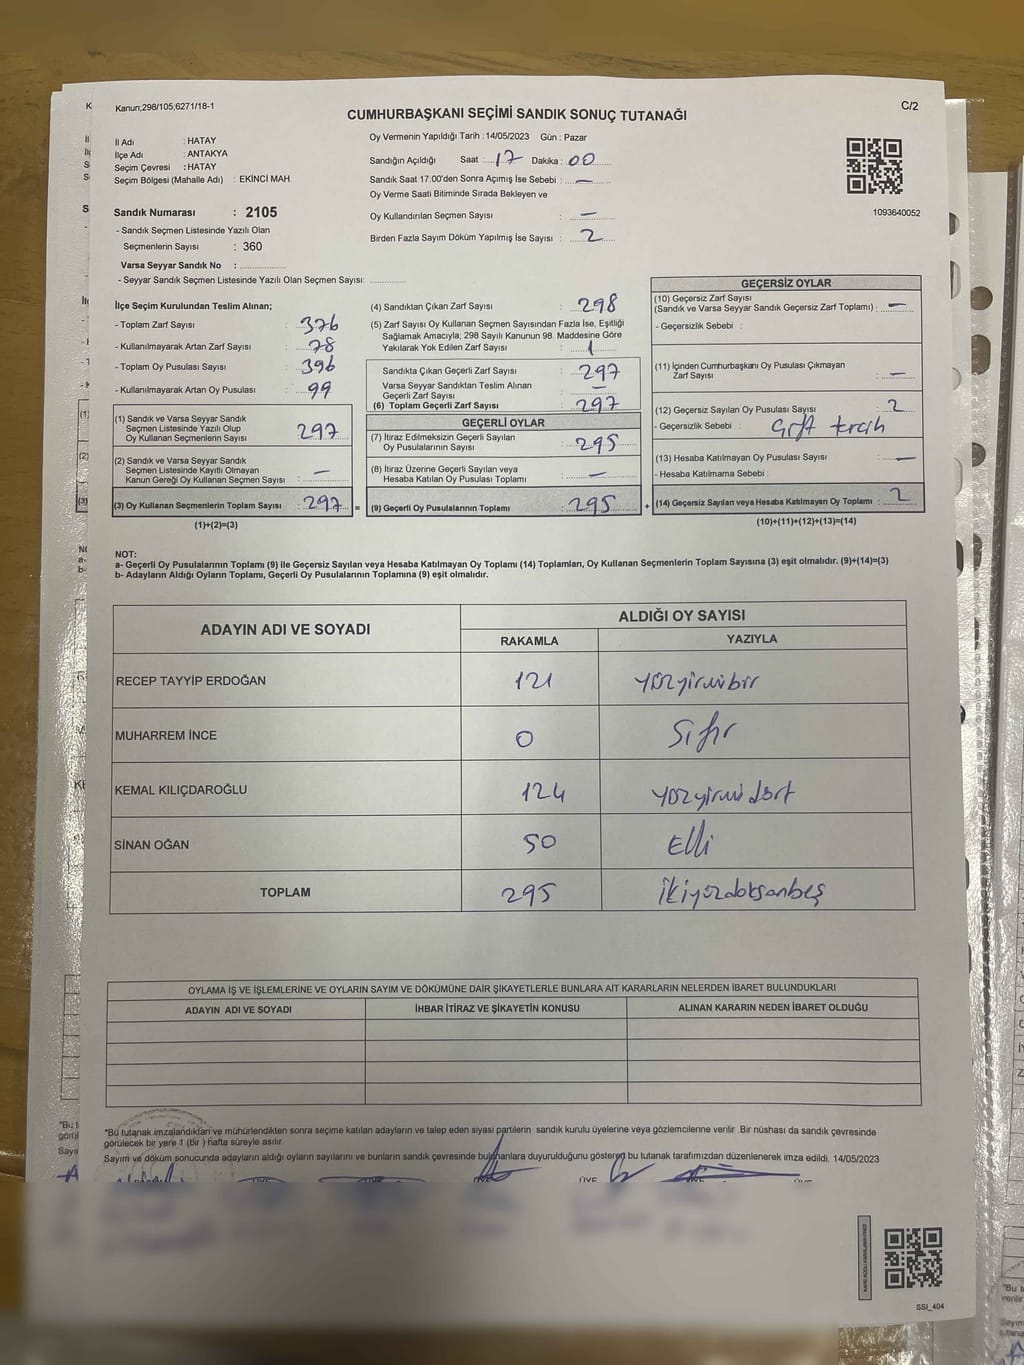 Kanun;298/105,6271/18-1
C/2
CUMHURBAŞKANI SEÇİMİ SANDIK SONUÇ TUTANAĞI
İl Adı : HATAY
İlçe Adı : ANTAKYA
Seçim Çevresi : HATAY
Seçim Bölgesi (Mahalle Adı) : EKİNCİ MAH.
Oy Vermenin Yapıldığı Tarih : 14/05/2023 Gün : Pazar
Sandığın Açıldığı Saat : 17 Dakika : 00
Sandık Saat 17:00'den Sonra Açımış İse Sebebi : —
Oy Verme Saati Bitiminde Sırada Bekleyen ve
Oy Kullandırılan Seçmen Sayısı : —
Birden Fazla Sayım Döküm Yapılmış İse Sayısı : 2
1093640052
Sandık Numarası : 2105
- Sandık Seçmen Listesinde Yazılı Olan
Seçmenlerin Sayısı : 360
Varsa Seyyar Sandık No :
- Seyyar Sandık Seçmen Listesinde Yazılı Olan Seçmen Sayısı:
İlçe Seçim Kurulundan Teslim Alınan;
- Toplam Zarf Sayısı : 376
- Kullanılmayarak Artan Zarf Sayısı : 78
- Toplam Oy Pusulası Sayısı : 396
- Kullanılmayarak Artan Oy Pusulası : 99
(1) Sandık ve Varsa Seyyar Sandık
Seçmen Listesinde Yazılı Olup
Oy Kullanan Seçmenlerin Sayısı : 297
(2) Sandık ve Varsa Seyyar Sandık
Seçmen Listesinde Kayıtlı Olmayan
Kanun Gereği Oy Kullanan Seçmen Sayısı : —
(3) Oy Kullanan Seçmenlerin Toplam Sayısı : 297
(1)+(2)=(3)
(4) Sandıktan Çıkan Zarf Sayısı : 298
(5) Zarf Sayısı Oy Kullanan Seçmen Sayısından Fazla İse, Eşitliği
Sağlamak Amacıyla; 298 Sayılı Kanunun 98. Maddesine Göre
Yakılarak Yok Edilen Zarf Sayısı : 1
Sandıkta Çıkan Geçerli Zarf Sayısı : 297
Varsa Seyyar Sandıktan Teslim Alınan
Geçerli Zarf Sayısı : —
(6) Toplam Geçerli Zarf Sayısı : 297
GEÇERLİ OYLAR
(7) İtiraz Edilmeksizin Geçerli Sayılan
Oy Pusulalarının Sayısı : 295
(8) İtiraz Üzerine Geçerli Sayılan veya
Hesaba Katılan Oy Pusulası Toplamı : —
= (9) Geçerli Oy Pusulalarının Toplamı : 295
GEÇERSİZ OYLAR
(10) Geçersiz Zarf Sayısı
(Sandık ve Varsa Seyyar Sandık Geçersiz Zarf Toplamı) : —
- Geçersizlik Sebebi :
(11) İçinden Cumhurbaşkanı Oy Pusulası Çıkmayan
Zarf Sayısı : —
(12) Geçersiz Sayılan Oy Pusulası Sayısı : 2
- Geçersizlik Sebebi : Çift tercih
(13) Hesaba Katılmayan Oy Pusulası Sayısı : —
- Hesaba Katılmama Sebebi :
+ (14) Geçersiz Sayılan veya Hesaba Katılmayan Oy Toplamı : 2
(10)+(11)+(12)+(13)=(14)
NOT:
a- Geçerli Oy Pusulalarının Toplamı (9) ile Geçersiz Sayılan veya Hesaba Katılmayan Oy Toplamı (14) Toplamları, Oy Kullanan Seçmenlerin Toplam Sayısına (3) eşit olmalıdır. (9)+(14)=(3)
b- Adayların Aldığı Oyların Toplamı, Geçerli Oy Pusulalarının Toplamına (9) eşit olmalıdır.
ADAYIN ADI VE SOYADI
ALDIĞI OY SAYISI
RAKAMLA YAZIYLA
RECEP TAYYİP ERDOĞAN 121 yüzyirmibir
MUHARREM İNCE 0 Sıfır
KEMAL KILIÇDAROĞLU 124 yüzyirmi dört
SİNAN OĞAN 50 Elli
TOPLAM 295 İkiyüzdoksanbeş
OYLAMA İŞ VE İŞLEMLERİNE VE OYLARIN SAYIM VE DÖKÜMÜNE DAİR ŞİKAYETLERLE BUNLARA AİT KARARLARIN NELERDEN İBARET BULUNDUKLARI
ADAYIN ADI VE SOYADI İHBAR İTİRAZ VE ŞİKAYETİN KONUSU ALINAN KARARIN NEDEN İBARET OLDUĞU
*Bu tutanak imzalandıktan ve mühürlendikten sonra seçime katılan adayların ve talep eden siyasi partilerin sandık kurulu üyelerine veya gözlemcilerine verilir .Bir nüshası da sandık çevresinde
görülecek bir yere 1 (bir ) hafta süreyle asılır.
Sayım ve döküm sonucunda adayların aldığı oyların sayılarını ve bunların sandık çevresinde bulunanlara duyurulduğunu gösteren bu tutanak tarafımızdan düzenlenerek imza edildi. 14/05/2023
SSI_404